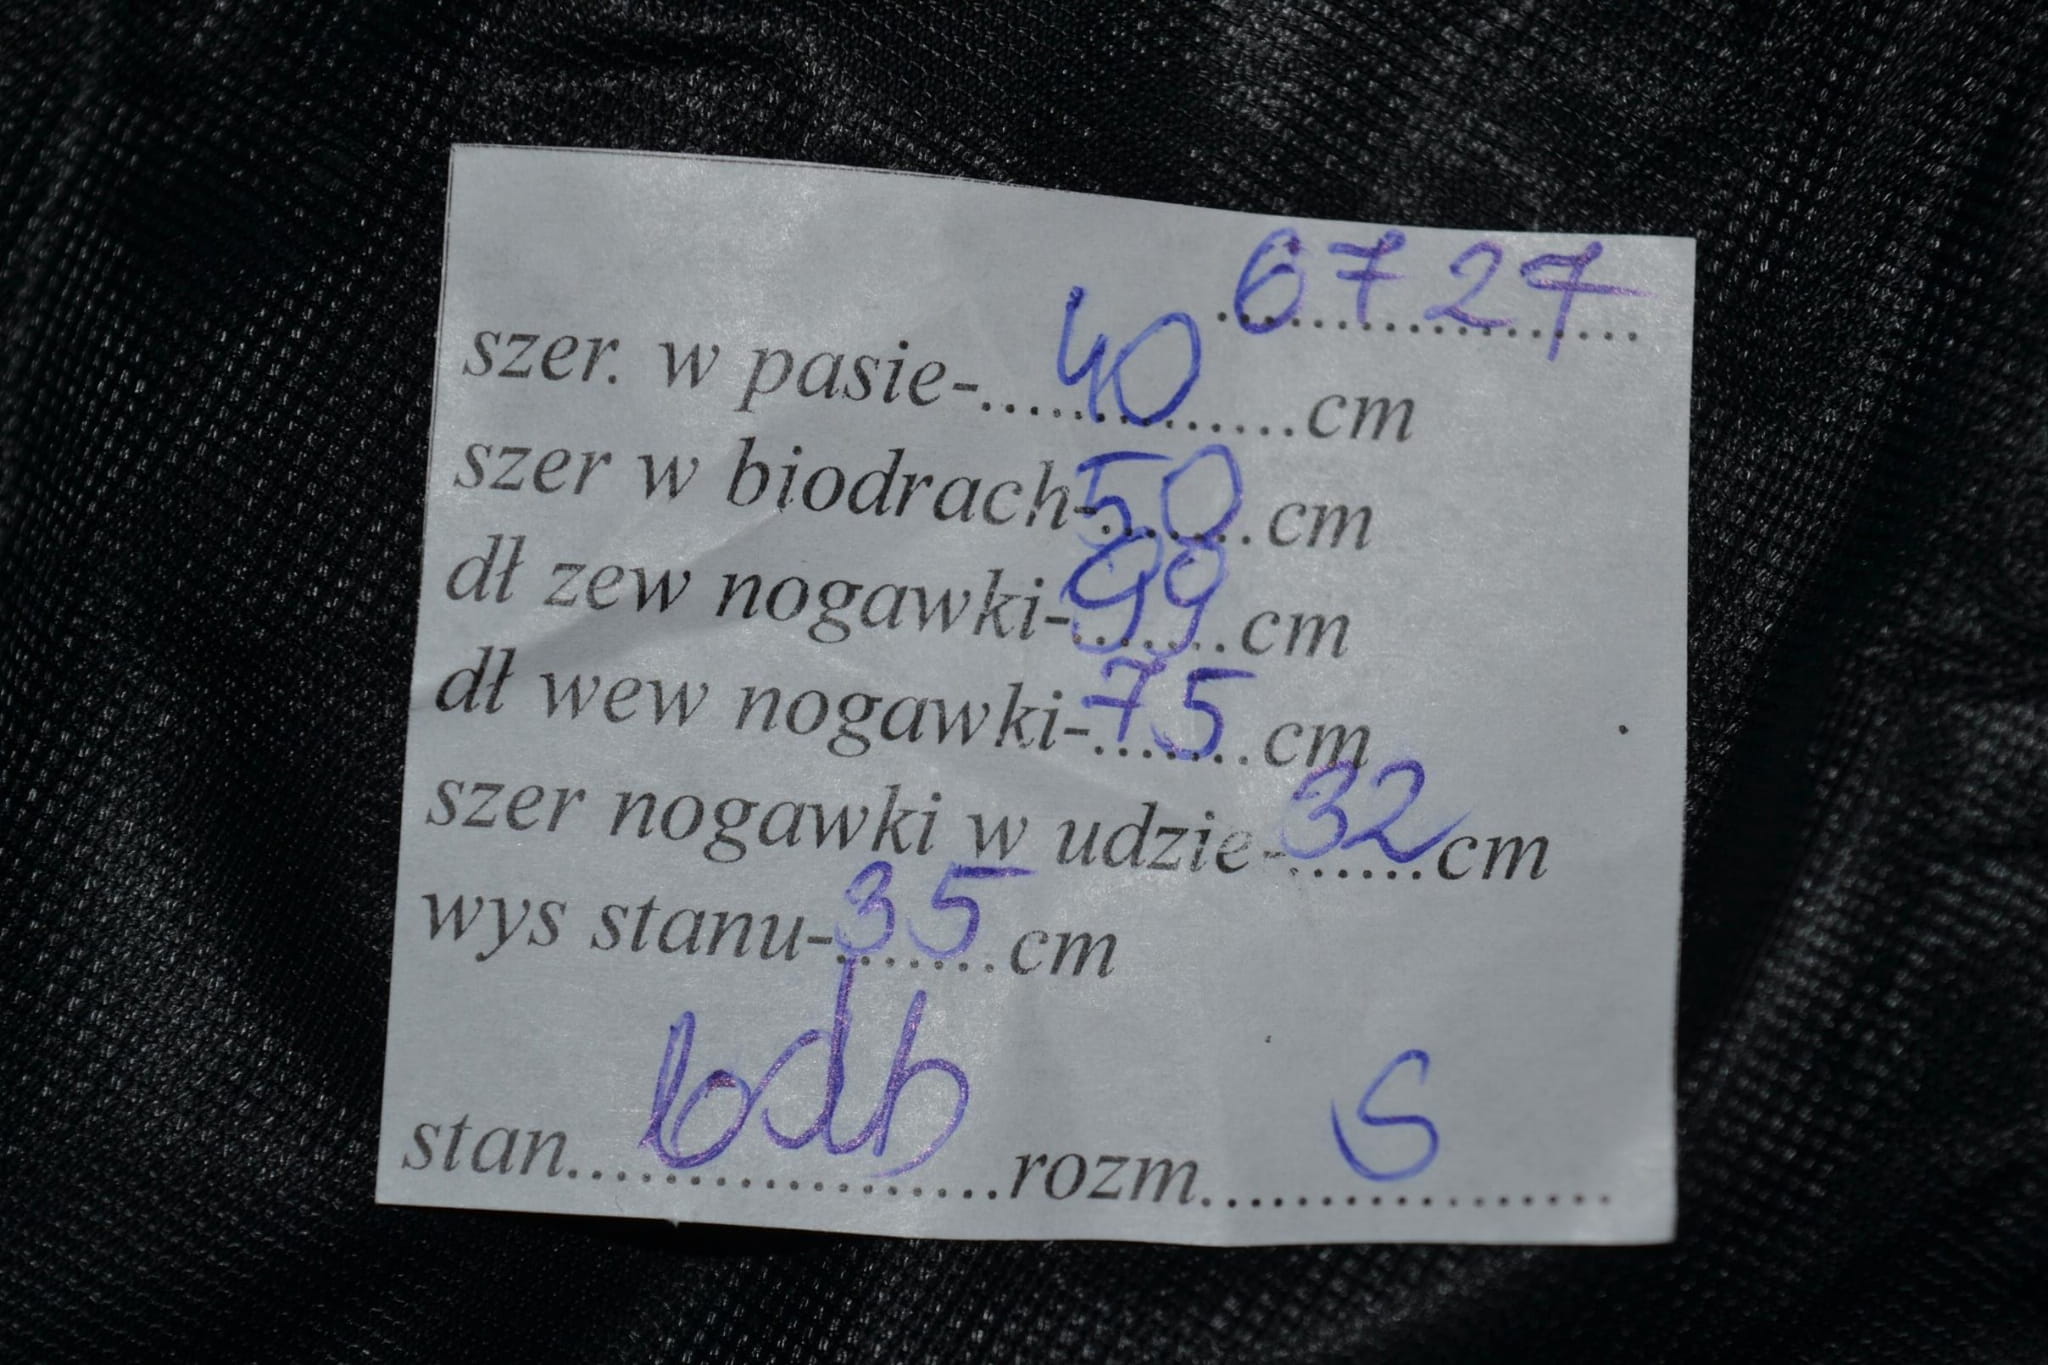 6727
szer. w pasie-......40......cm
szer w biodrach-50...cm
dł zew nogawki-99...cm
dł wew nogawki-75...cm
szer nogawki w udzie-32...cm
wys stanu-35...cm
stan......bdb......rozm......S......